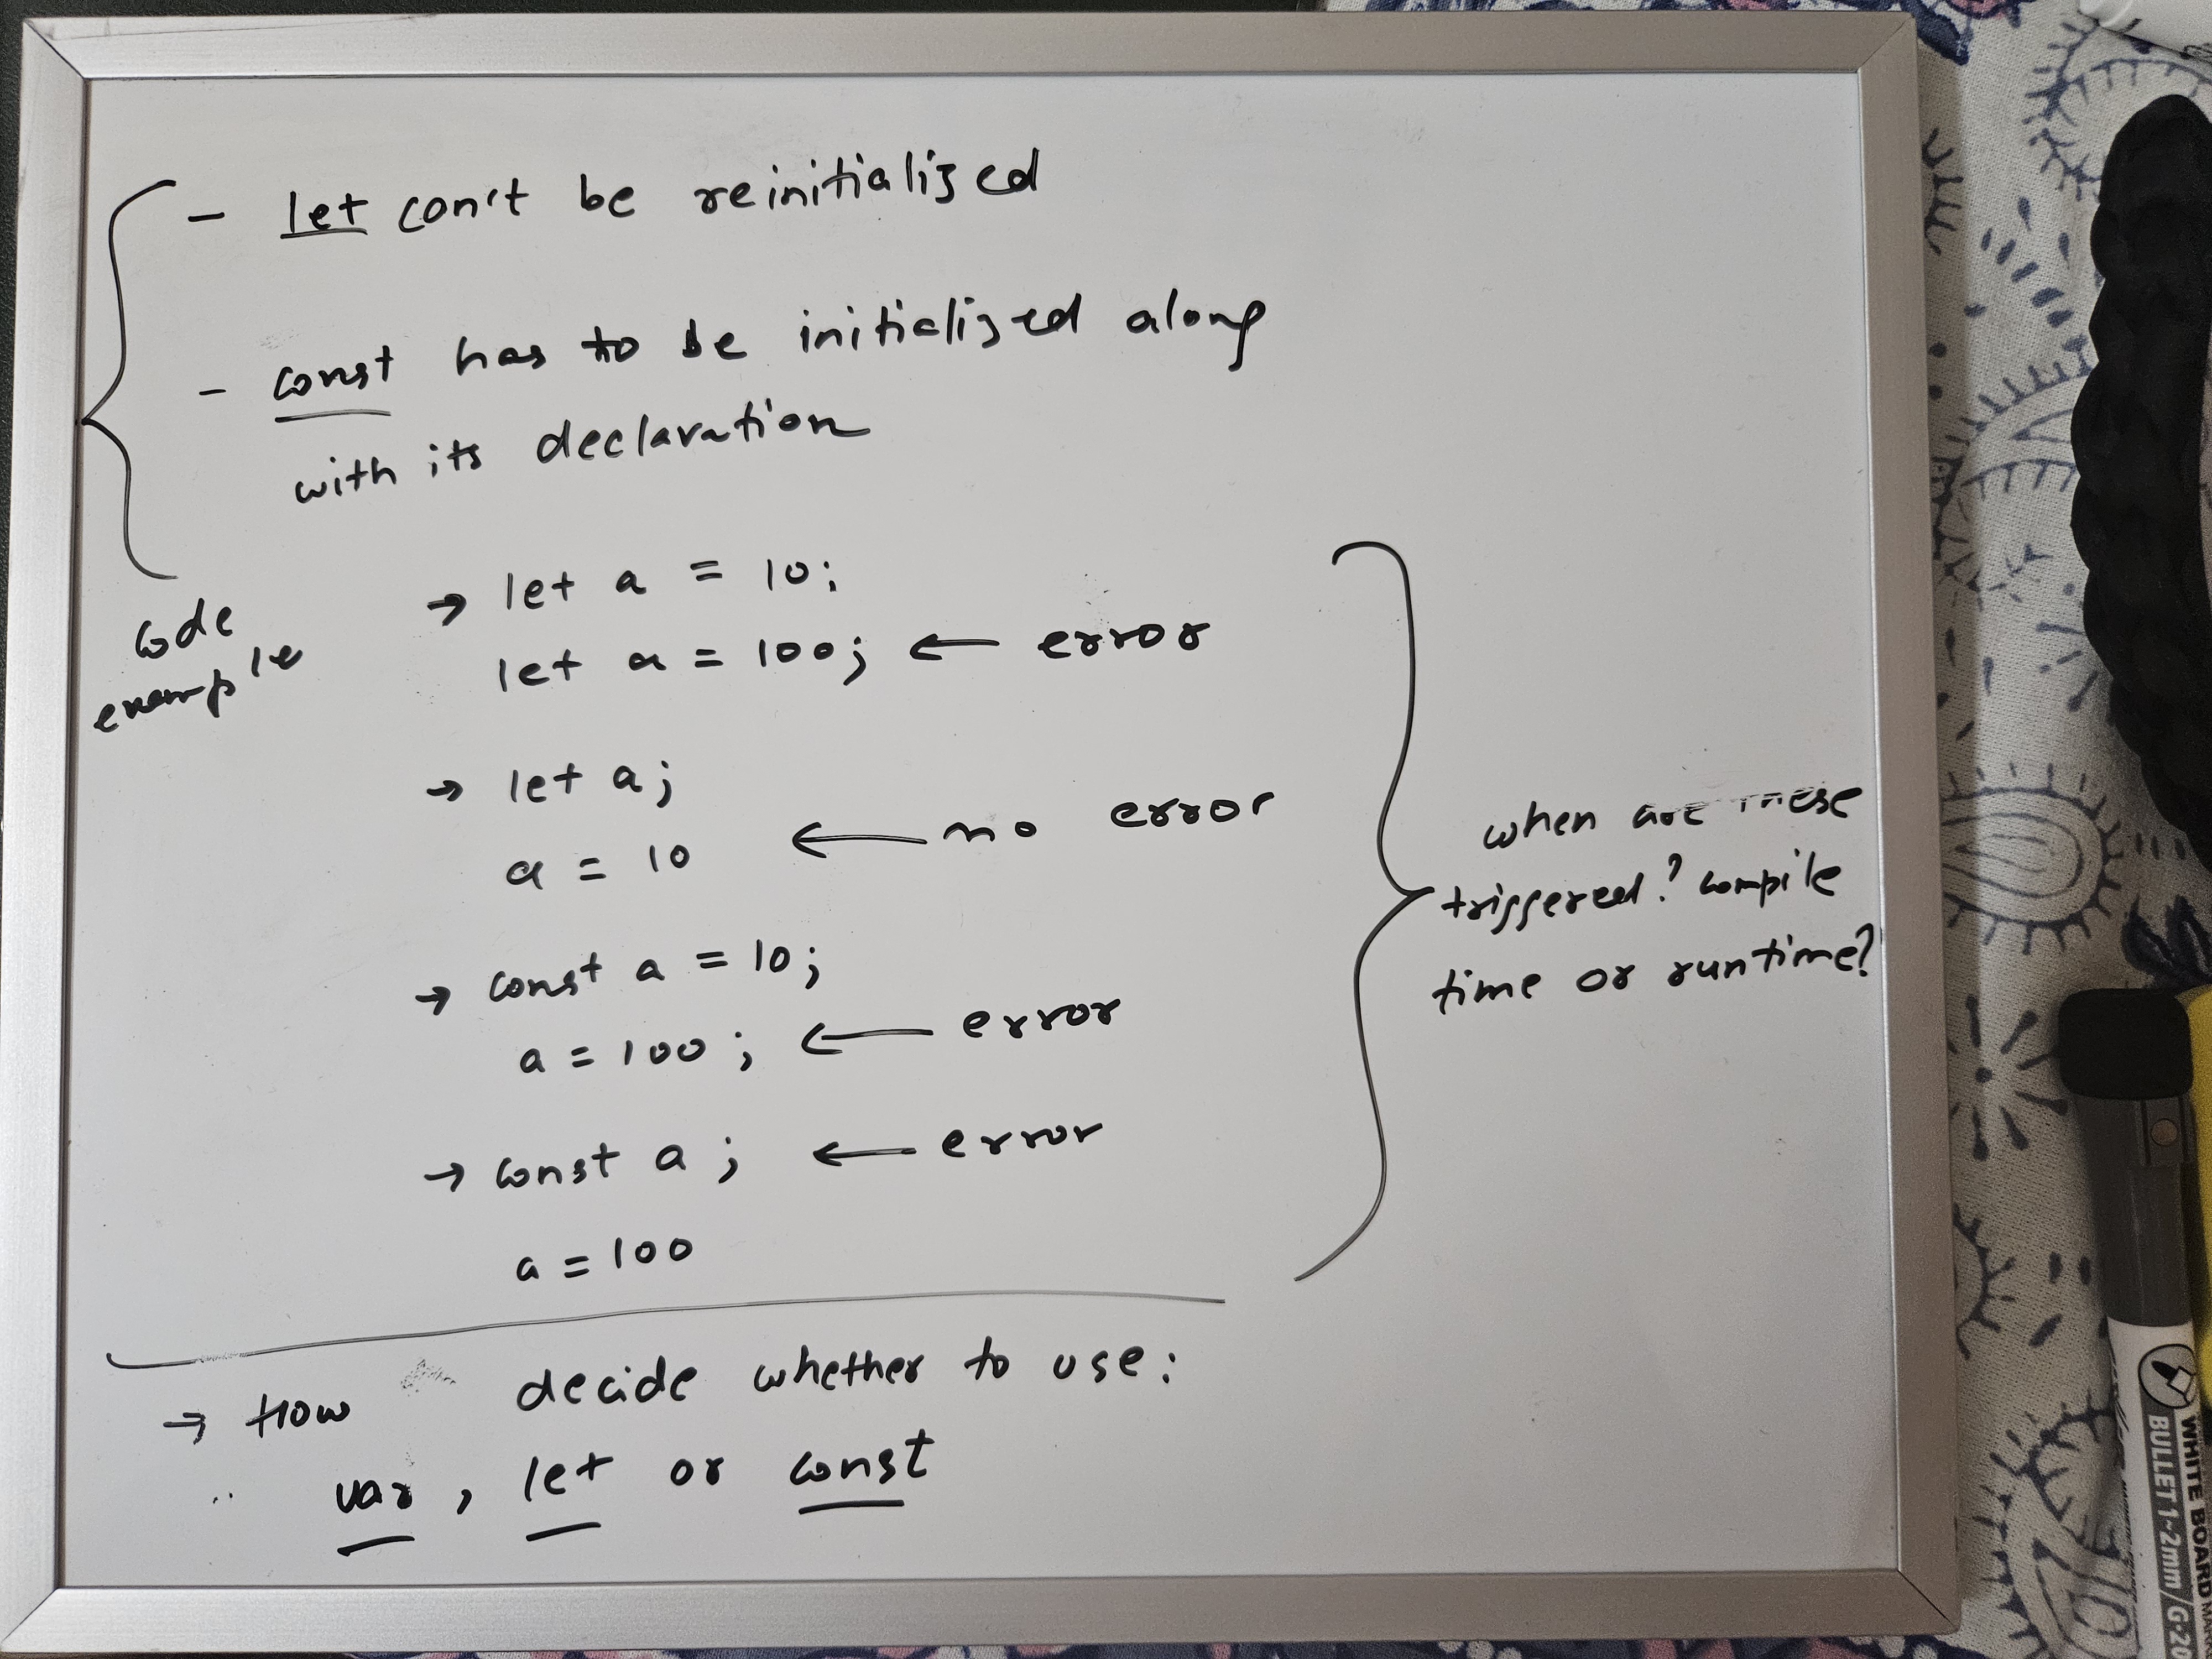 - let can't be reinitialized
- const has to be initialized along
with its declaration
code
example
→ let a = 10;
let a = 100; ← error
→ let a;
a = 10 ← no error
→ const a = 10;
a = 100; ← error
→ const a; ← error
a = 100
when are these
triggered? compile
time or runtime?
→ How decide whether to use:
var, let or const
WHITE BOARD
BULLET 1~2mm/G-20